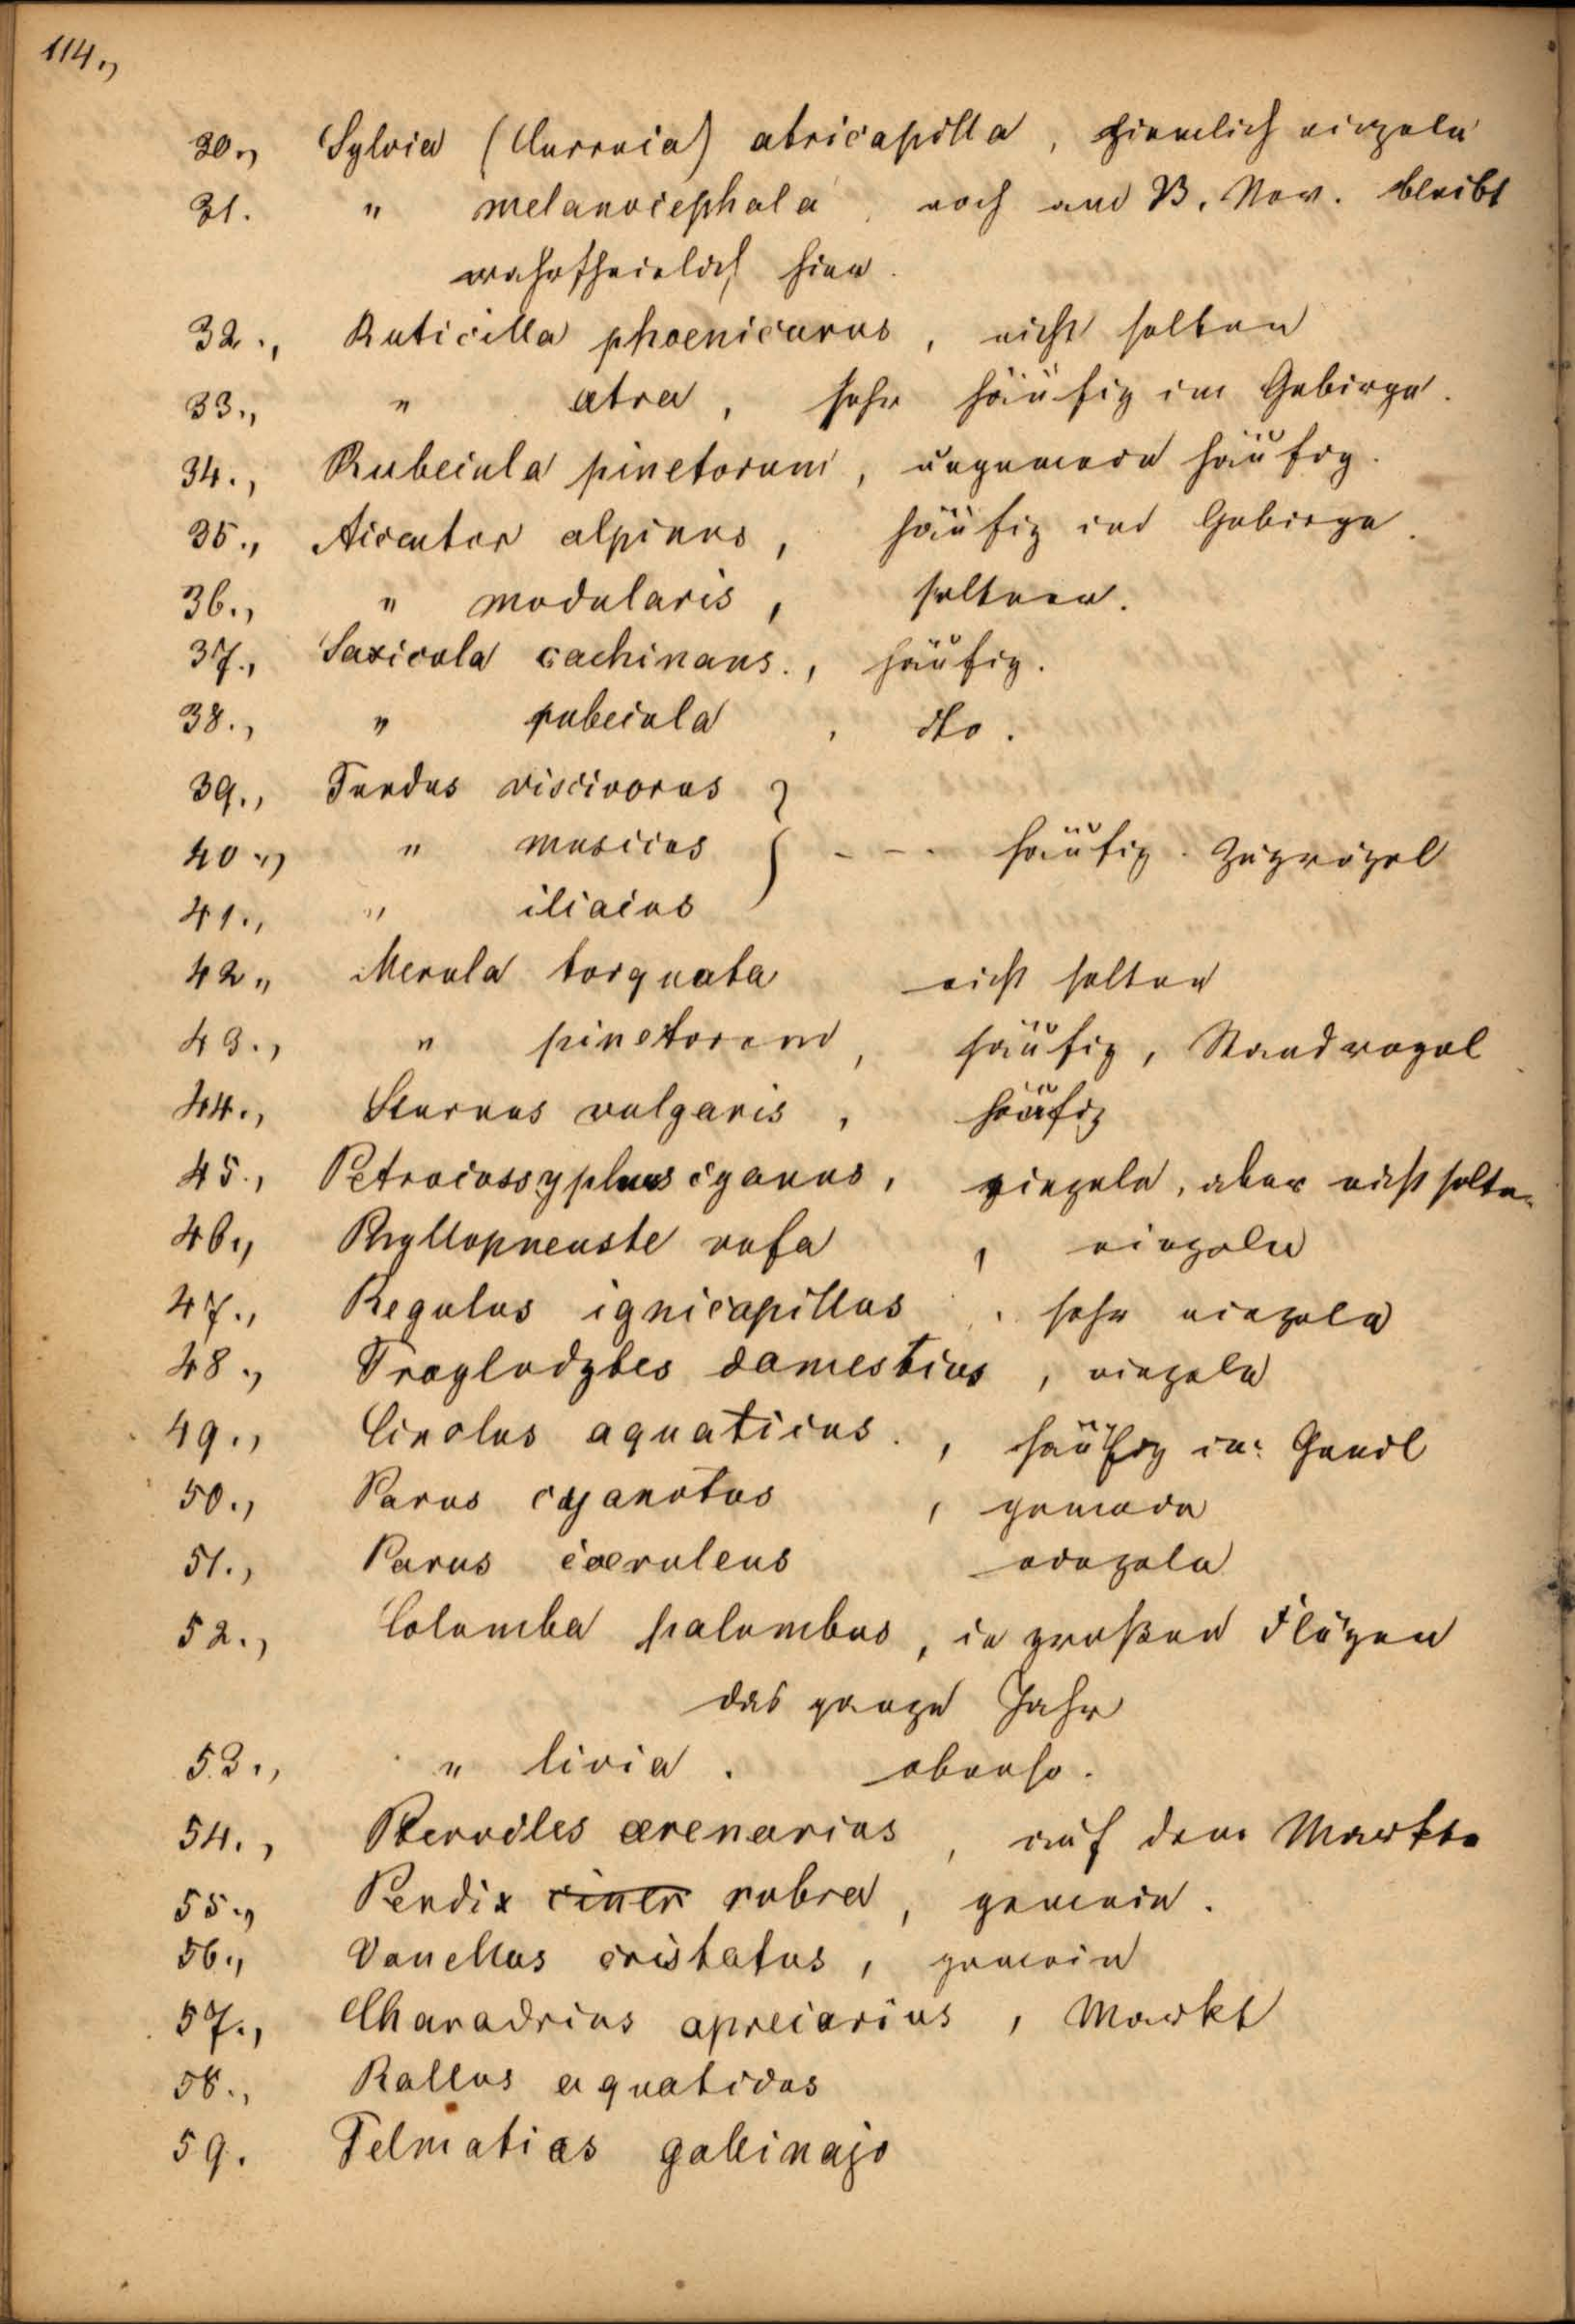 114.,
30., Sylvia (Curruca) atricapilla, ziemlich einzeln
31. " melanocephala, noch am 13. Nov. bleibt
wahrscheinlich hier.
32., Ruticilla phoenicurus, nicht selten
33., " atra, sehr häufig im Gebirge.
34., Rubecula pinetorum, ungemein häufig.
35., Accentor alpinus, häufig im Gebirge.
36., " modularis, seltner.
37., Saxicola cachinans., häufig.
38., " rubecula, dto.
39., Turdus viscivorus }
40., " musicus } - - - häufig. Zugvögel
41., " iliacus }
42., Merula torquata nicht selten
43., " pinetorum, häufig, Standvogel
44., Sturnus vulgaris, häufig
45., Petrocossyphus cyanus, einzeln, aber nicht selten
46., Phyllopneuste rufa, einzeln
47., Regulus ignicapillus, sehr einzeln
48., Troglodytes domesticus, einzeln
49., Cinclus aquaticus., häufig im Genil
50., Parus cyanotus, gemein
51., Parus coeruleus einzeln
52., Columba palumbus, in großen Flügen
das ganze Jahr
53., " livia. ebenso.
54., Pterocles arenarius, auf dem Markte
55., Perdix ciner rubra, gemein.
56., Vanellus cristatus, gemein
57., Charadrius apricarius, Markt
58., Rallus aquaticus
59. Telmatias gallinago